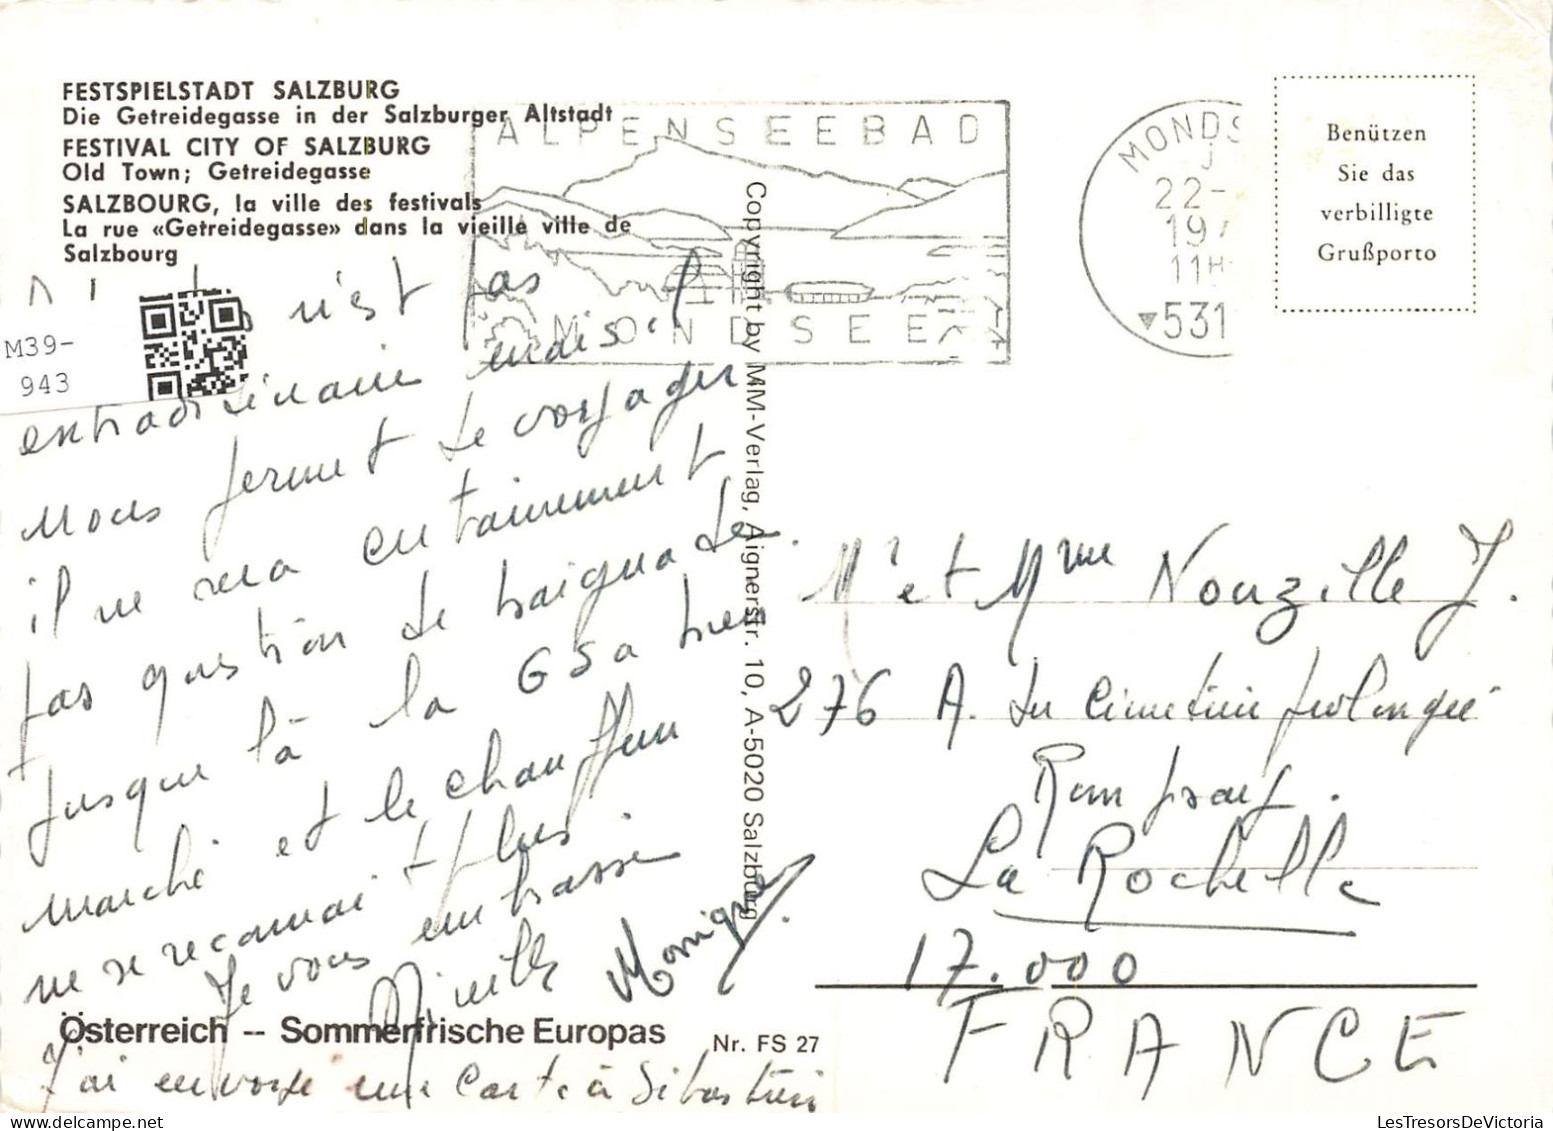 FESTSPIELSTADT SALZBURG
Die Getreidegasse in der Salzburger Altstadt
FESTIVAL CITY OF SALZBURG
Old Town; Getreidegasse
SALZBOURG, la ville des festivals
La rue «Getreidegasse» dans la vieille ville de
Salzbourg
n'est pas
extraordinaire mais il
nous permet de voyager
il ne sera certainement
pas question de baignade.
Jusque là la GSA bien
marché et le chauffeur
ne se reconnait plus
Je vous embrasse
Mireille Monique
Österreich -- Sommerfrische Europas
Nr. FS 27
J'ai envoyé une carte à Sébastien
M39-
943
ALPENSEEBAD
MONDSEE
Copyright by MM-Verlag, Aignerstr. 10, A-5020 Salzburg
MONDS
22-
19
11H
531
Benützen
Sie das
verbilligte
Grußporto
Mr et Mme Nouzille J.
276 A. du Cimetière prolongée
Rompsay.
La Rochelle
17.000
FRANCE
LesTresorsDeVictoria